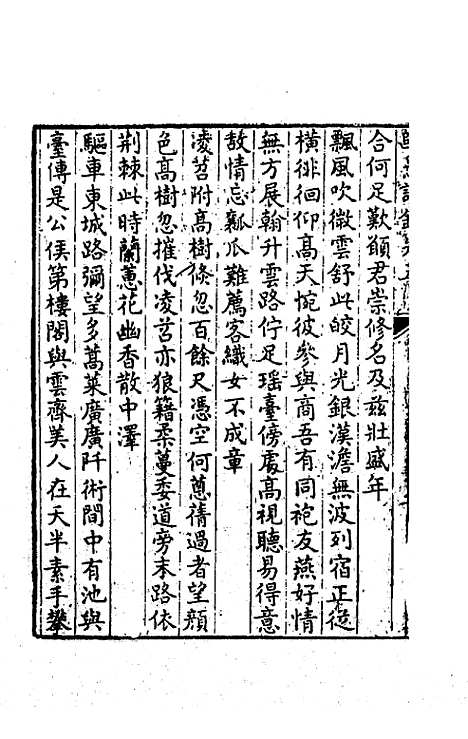 合何足歎願君崇修名及茲壯盛年
飄風吹微雲舒此皎月光銀漢澹無波列宿正從
橫徘徊仰高天惋彼參與商吾有同袍友燕好情
無方展翰升雲路佇足瑤臺傍處高視聽易得意
故情忘瓠瓜難薦客織女不成章
凌苕附高樹條忽百餘尺憑空何蔥蒨過者望顏
色高樹忽摧伐凌苕亦狼籍柔蔓委道旁末路依
荆棘此時蘭蕙花幽香散中澤
驅車東城路彌望多蒿萊廣廣阡術間中有池與
臺傳是公侯第樓閣與雲齊美人在天半素手攀